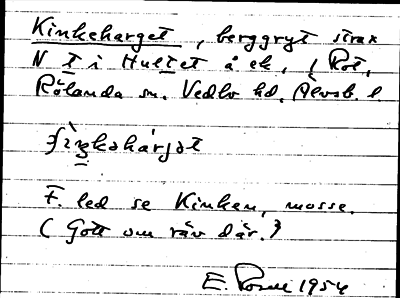 Kinkeharget, berggryt strax
N t i Hultet å ek, ( Rot,
Rölanda sn. Vedbo hd. Älvsb. l
F. led se Kinken, mosse.
( Gott om räv där. )
E. 1954